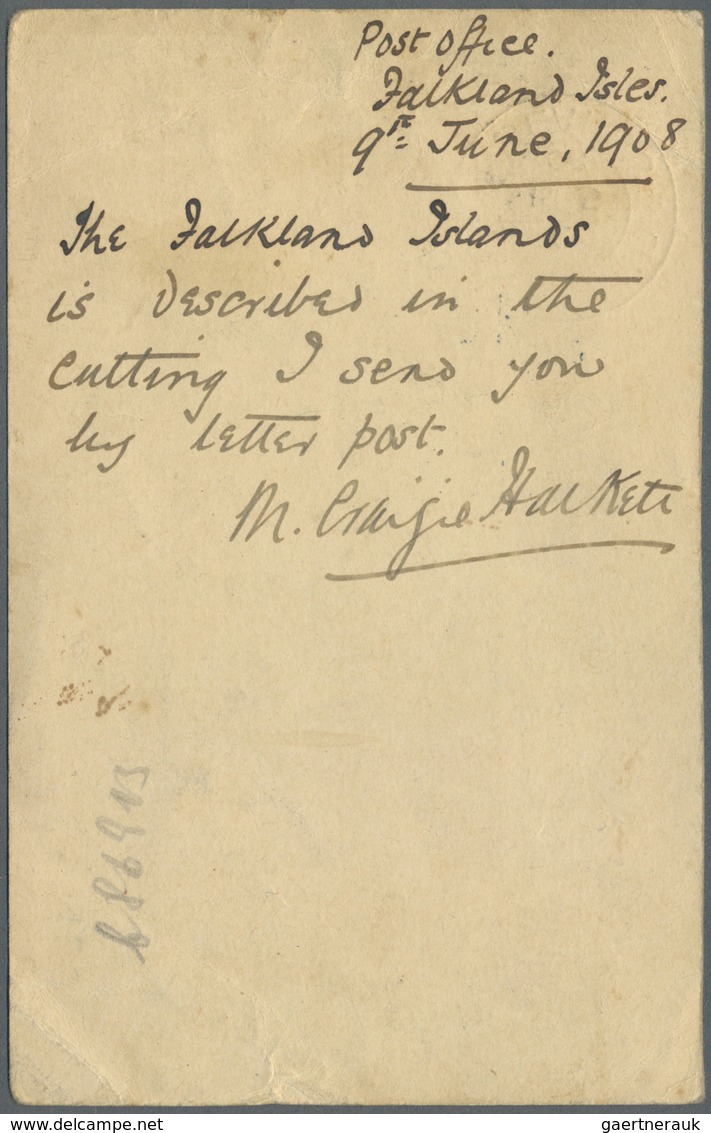 Post Office.
Falkland Isles.
9th June, 1908
The Falkland Islands
is described in the
cutting I send you
by letter post.
M. Craigie Halkett
delcampe.net
gaertnerauk